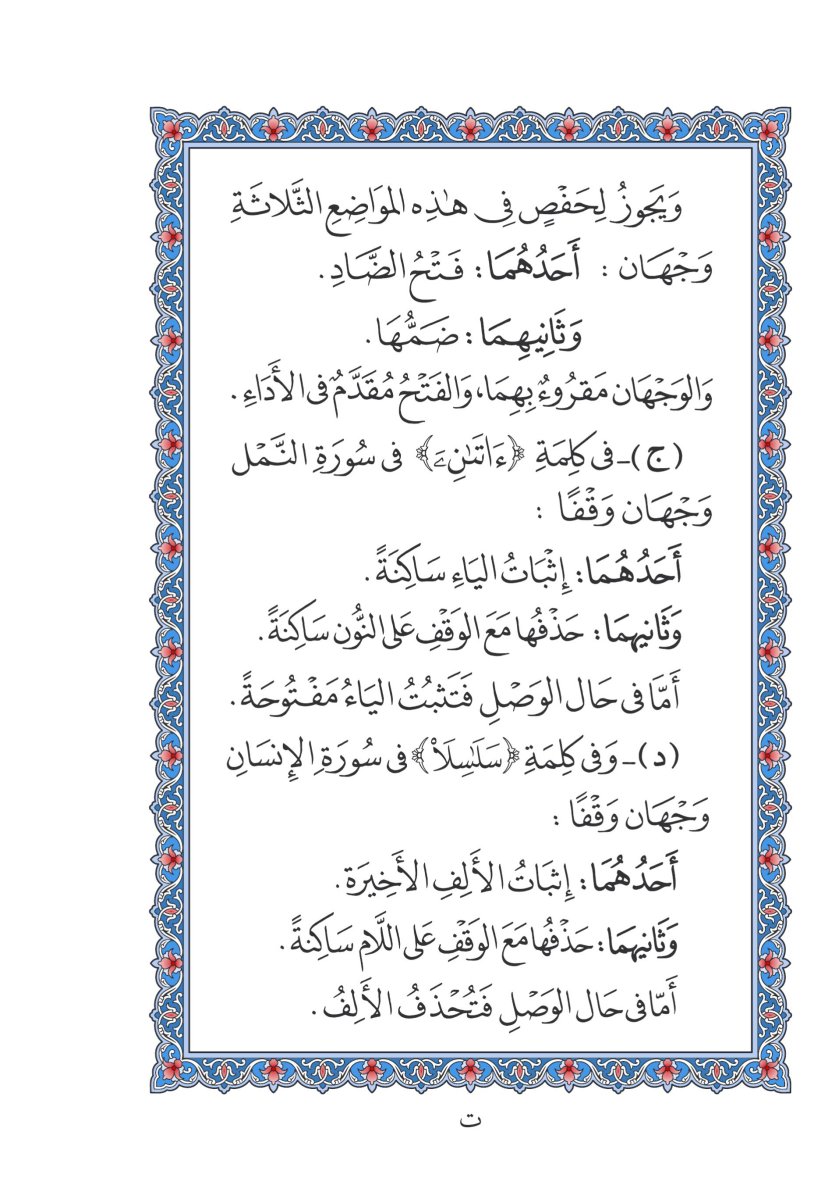 وَيَجوزُ لِحَفْصٍ فِى هَٰذِه المَوَاضِعِ الثَّلاثَةِ
وَجْهَان : أَحَدُهُمَا: فَتْحُ الضَّادِ.
وَثَانِيهِمَا: ضَمُّهَا.
وَالوَجْهَان مَقرُوءٌ بِهِمَا، وَالفَتْحُ مُقَدَّمٌ فى الأَدَاءِ.
(ج)ـ فى كَلِمَةِ ﴿ءَاتَىٰنِۦَ﴾ فى سُورَةِ النَّمْل
وَجْهَان وَقْفًا :
أَحَدُهُمَا: إِثْبَاتُ اليَاءِ سَاكِنَةً.
وَثَانيهِمَا: حَذْفُها مَعَ الوَقْفِ عَلى النُّون سَاكِنَةً.
أَمَّا فى حَال الوَصْلِ فَتَثبُتُ اليَاءُ مَفْتُوحَةً.
(د)ـ وَفى كَلِمَةِ ﴿سَلَٰسِلَا۟﴾ فى سُورَةِ الإِنسَانِ
وَجْهَان وَقْفًا :
أَحَدُهُمَا: إِثبَاتُ الأَلِفِ الأَخِيرَة.
وَثَانيهِمَا: حَذْفُها مَعَ الوَقْفِ عَلى اللَّام سَاكِنةً.
أَمّا فى حَال الوَصْلِ فَتُحْذَفُ الأَلِفُ.
ت